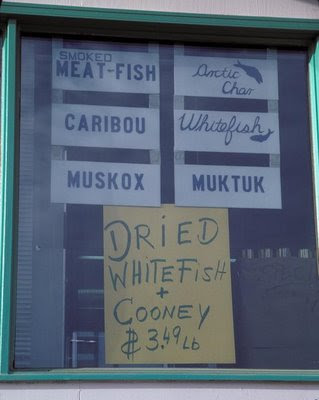 SMOKED
MEAT-FISH
Arctic
Char
CARIBOU
Whitefish
MUSKOX
MUKTUK
DRiED
WHiTEFiSH
+
COONEY
$ 3.49 LB